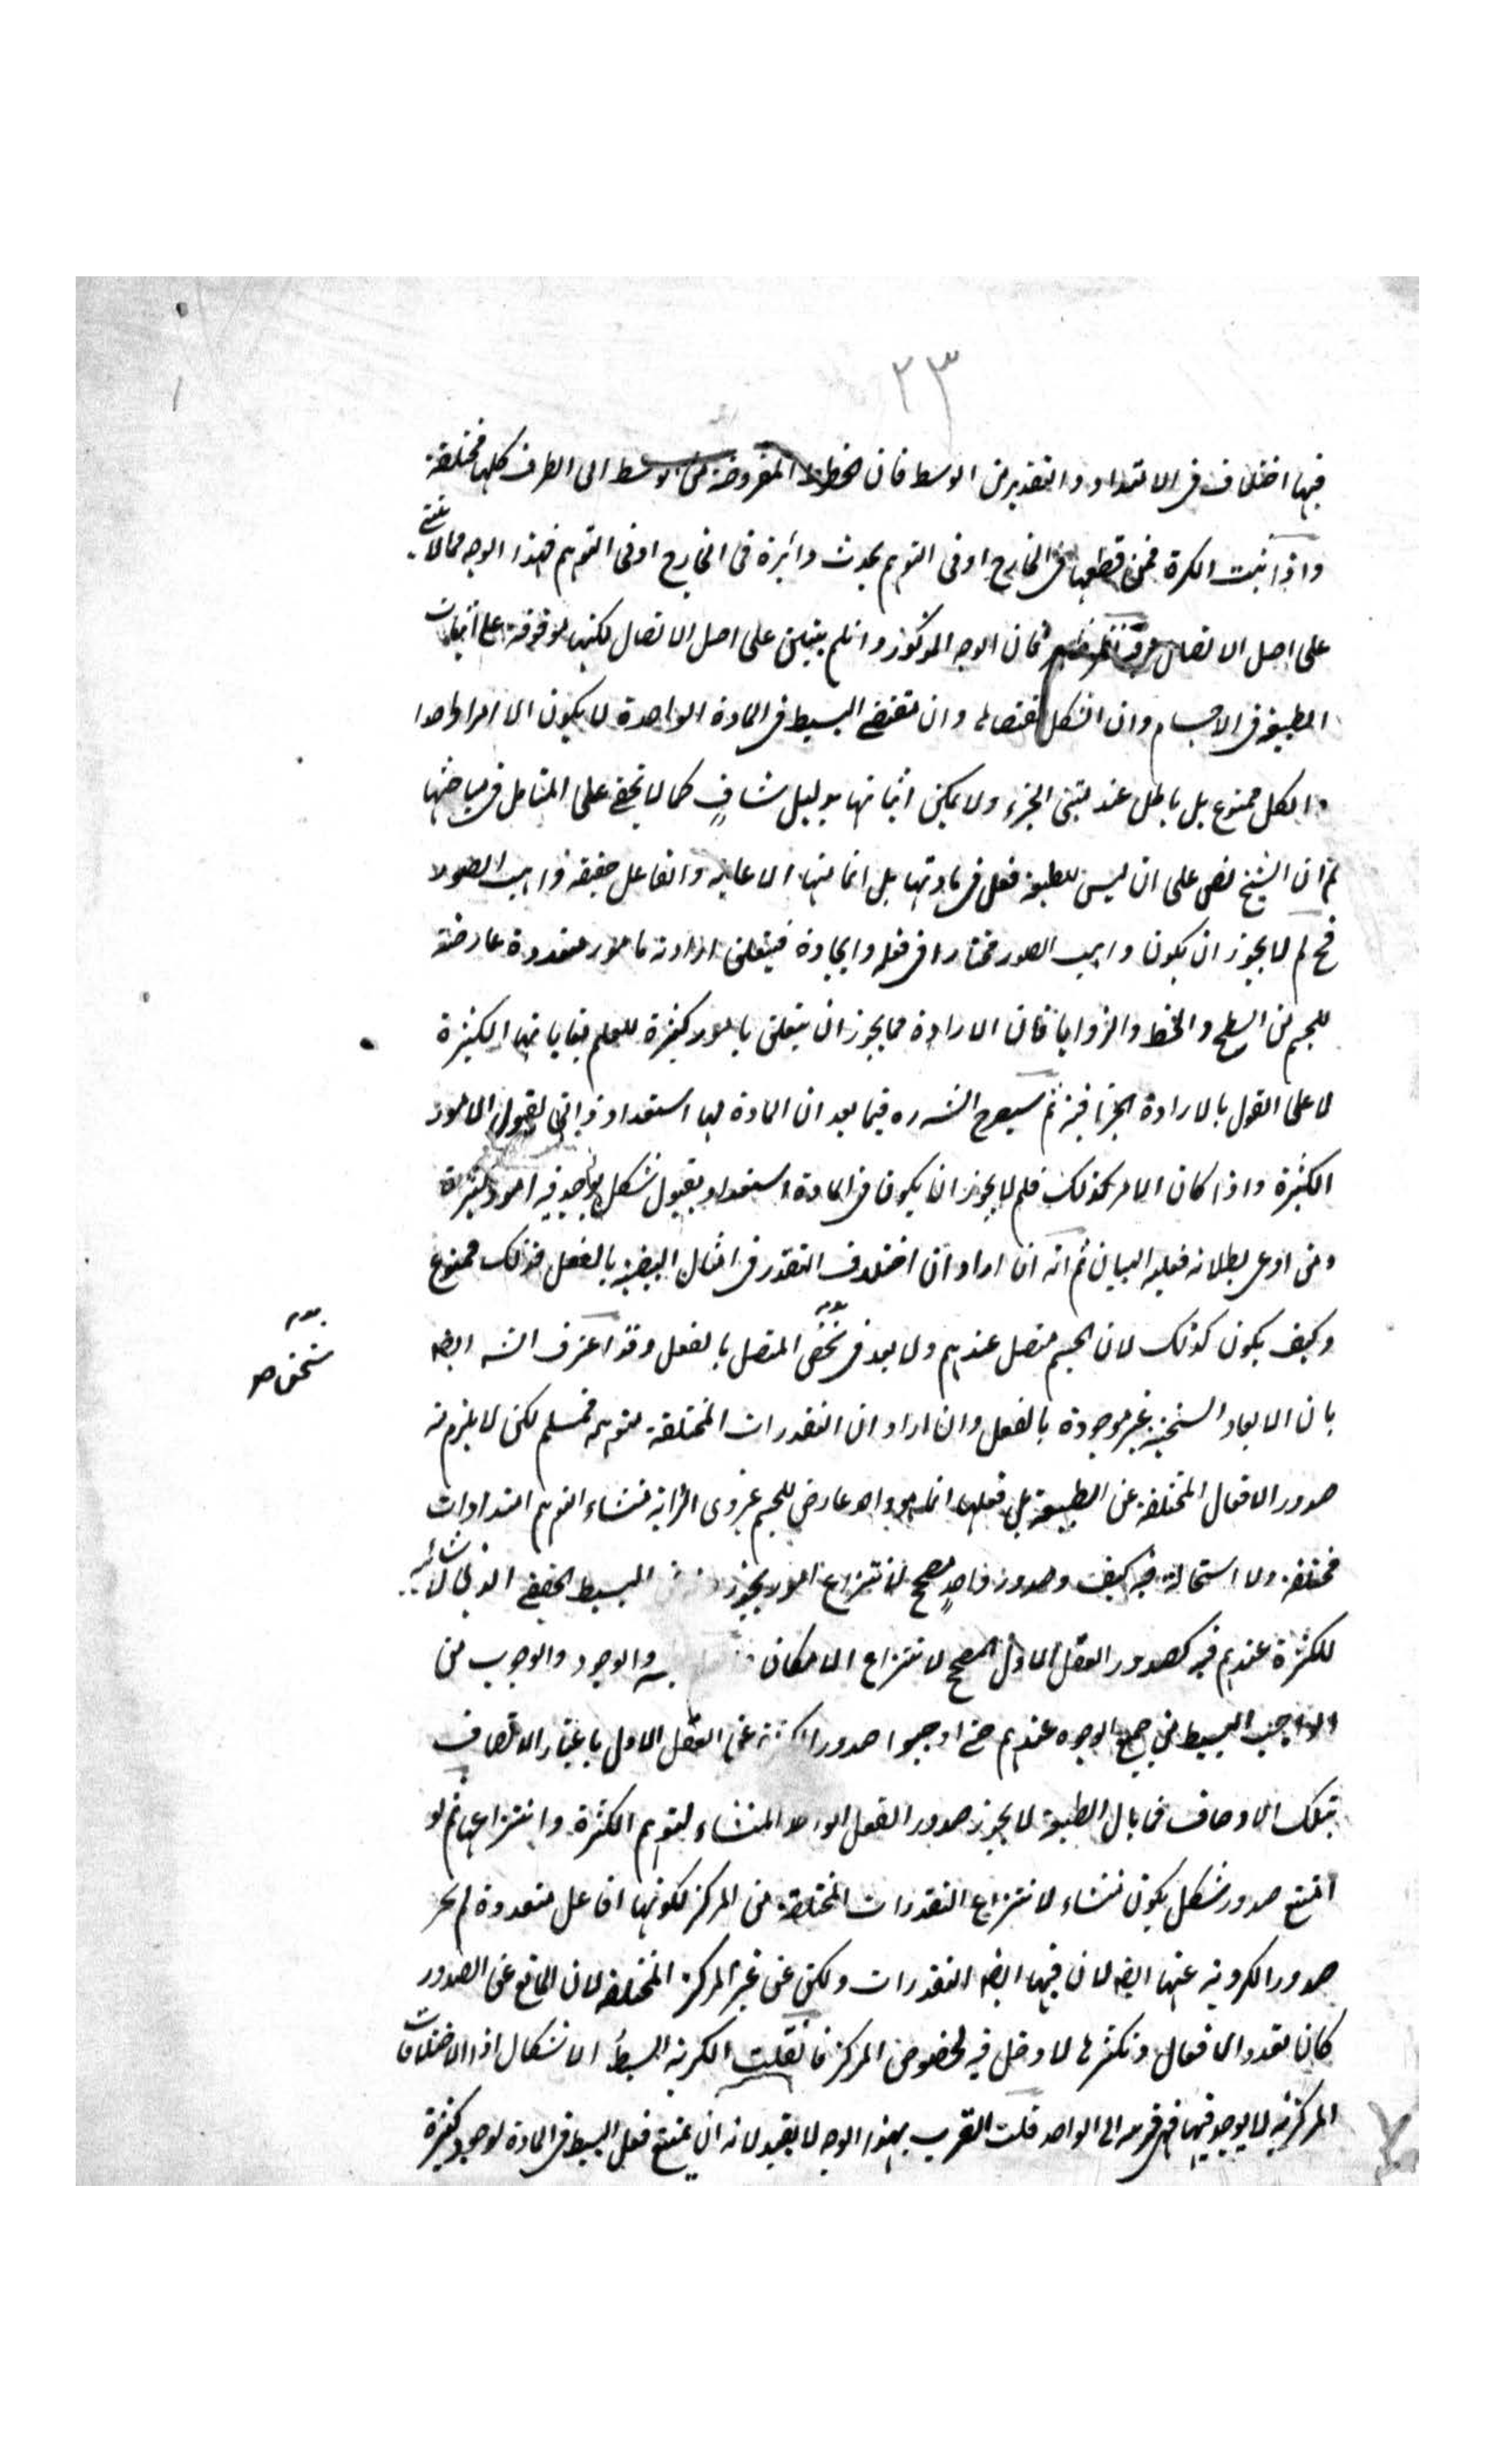 ٢٣
فيها اختلاف فى الامتداد والتقدير من الوسط فان الخطوط المفروضة من الوسط الى الطرف كلها مختلفة
واذا ثبت الكرة فمن قطعها فى الخارج او فى التوهم يحدث دائرة فى الخارج او فى التوهم فهذا الوجه مما لا يبتنى
على اصل الاتصال فان الوجه المذكور وان لم يبتن على اصل الاتصال لكنها موقوفة على اثبات
الطبيعة فى الاجسام وان الشكل مقتضاها وان مقتضى البسيط فى المادة الواحدة لا يكون الا امرا واحدا
والكل ممنوع بل باطل عند مثبتى الجزء ولا يمكن اثباتها بدليل شافٍ كما لا يخفى على المتأمل فى مباحثها
ثم ان الشيخ نص على ان ليس للطبيعة فعل فى مادتها بل انما منها الاعانة والفاعل حقيقة واهب الصور
فح لم لا يجوز ان يكون واهب الصور مختارا فى فعله وايجاده فيتعلق ارادته بامور متعددة عارضة
للجسم من السطح والخط والزوايا فان الارادة مما يجوز ان يتعلق بامور كثيرة للعلم بغاياتها الكثيرة
لا على القول بالارادة الجزافية ثم سيصرح الش ره فيما بعد ان المادة لها استعداد ذاتى لقبول الامور
الكثيرة واذا كان الامر كذلك فلم لا يجوز ان يكون فى المادة استعداد بقبول شكل يوجد فيه امور كثيرة
ومن ادعى بطلانه فعليه البيان ثم انه ان اراد ان اختلاف التقدر فى امثال البيضية بالفعل فذلك ممنوع
وكيف يكون كذلك لان الجسم متصل عندهم ولا بعد فى المتصل بالفعل وقد اعترف الش ايضه
بان الابعاد الثخينة غير موجودة بالفعل وان اراد ان التقدرات المختلفة متوهمة فمسلم لكن لا يلزم منه
صدور الافعال المختلفة عن الطبيعة بل فعلها انما هو واحد عارض للجسم غير ذى اجزاء منشاء لتوهم امتدادات
مختلفة ولا استحالة فيه كيف وصدور واحدٍ مصحح لانتزاع امور يجوز البسيط الحقيقى الذى لا شائبة
للكثرة عندهم فيه كصدور العقل الاول المصحح لانتزاع الامكان والوجود والوجوب من
الواجب البسيط من جميع الوجوه عندهم حتى اوجبوا صدور الكثرة عن العقل الاول باعتبار الاتصاف
بتلك الاوصاف فما بال الطبيعة لا يجوز صدور الفعل الواحد المنشاء لتوهم الكثرة وانتزاعها ثم لو
امتنع صدور شكل يكون منشاء لانتزاع التقدرات المختلفة من المركز لكونها افاعل متعددة لم يجز
صدور الكروية عنها ايضه لان فيها ايضه التقدرات ولكن عن غير المركز المختلفة لان المانع عن الصدور
كان تعدد الافعال وتكثرها لا دخل فيه لخصوص المركز فان قلت الكرية ابسط الاشكال اذ الاختلافات
المركزية لا يوجد فيها فهى اقرب الى الواحد قلت التقرب بهذا الوجه لا يفيد لانه ان يمتنع فعل البسيط فى المادة لوجود كثيرة